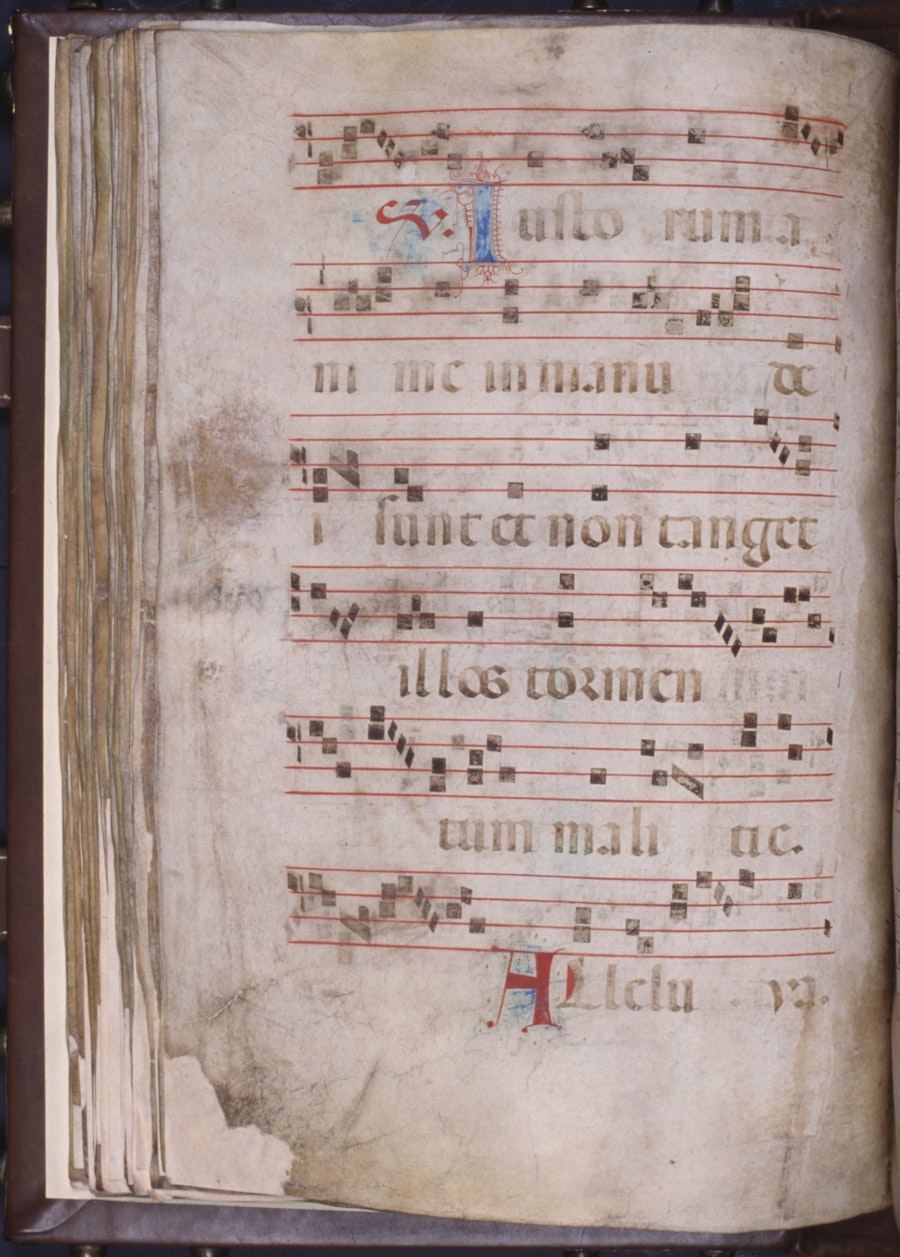 V. Iusto rum a
ni me in manu de
i sunt et non tanget
illos tormen
tum mali tie.
ALlelu ya.